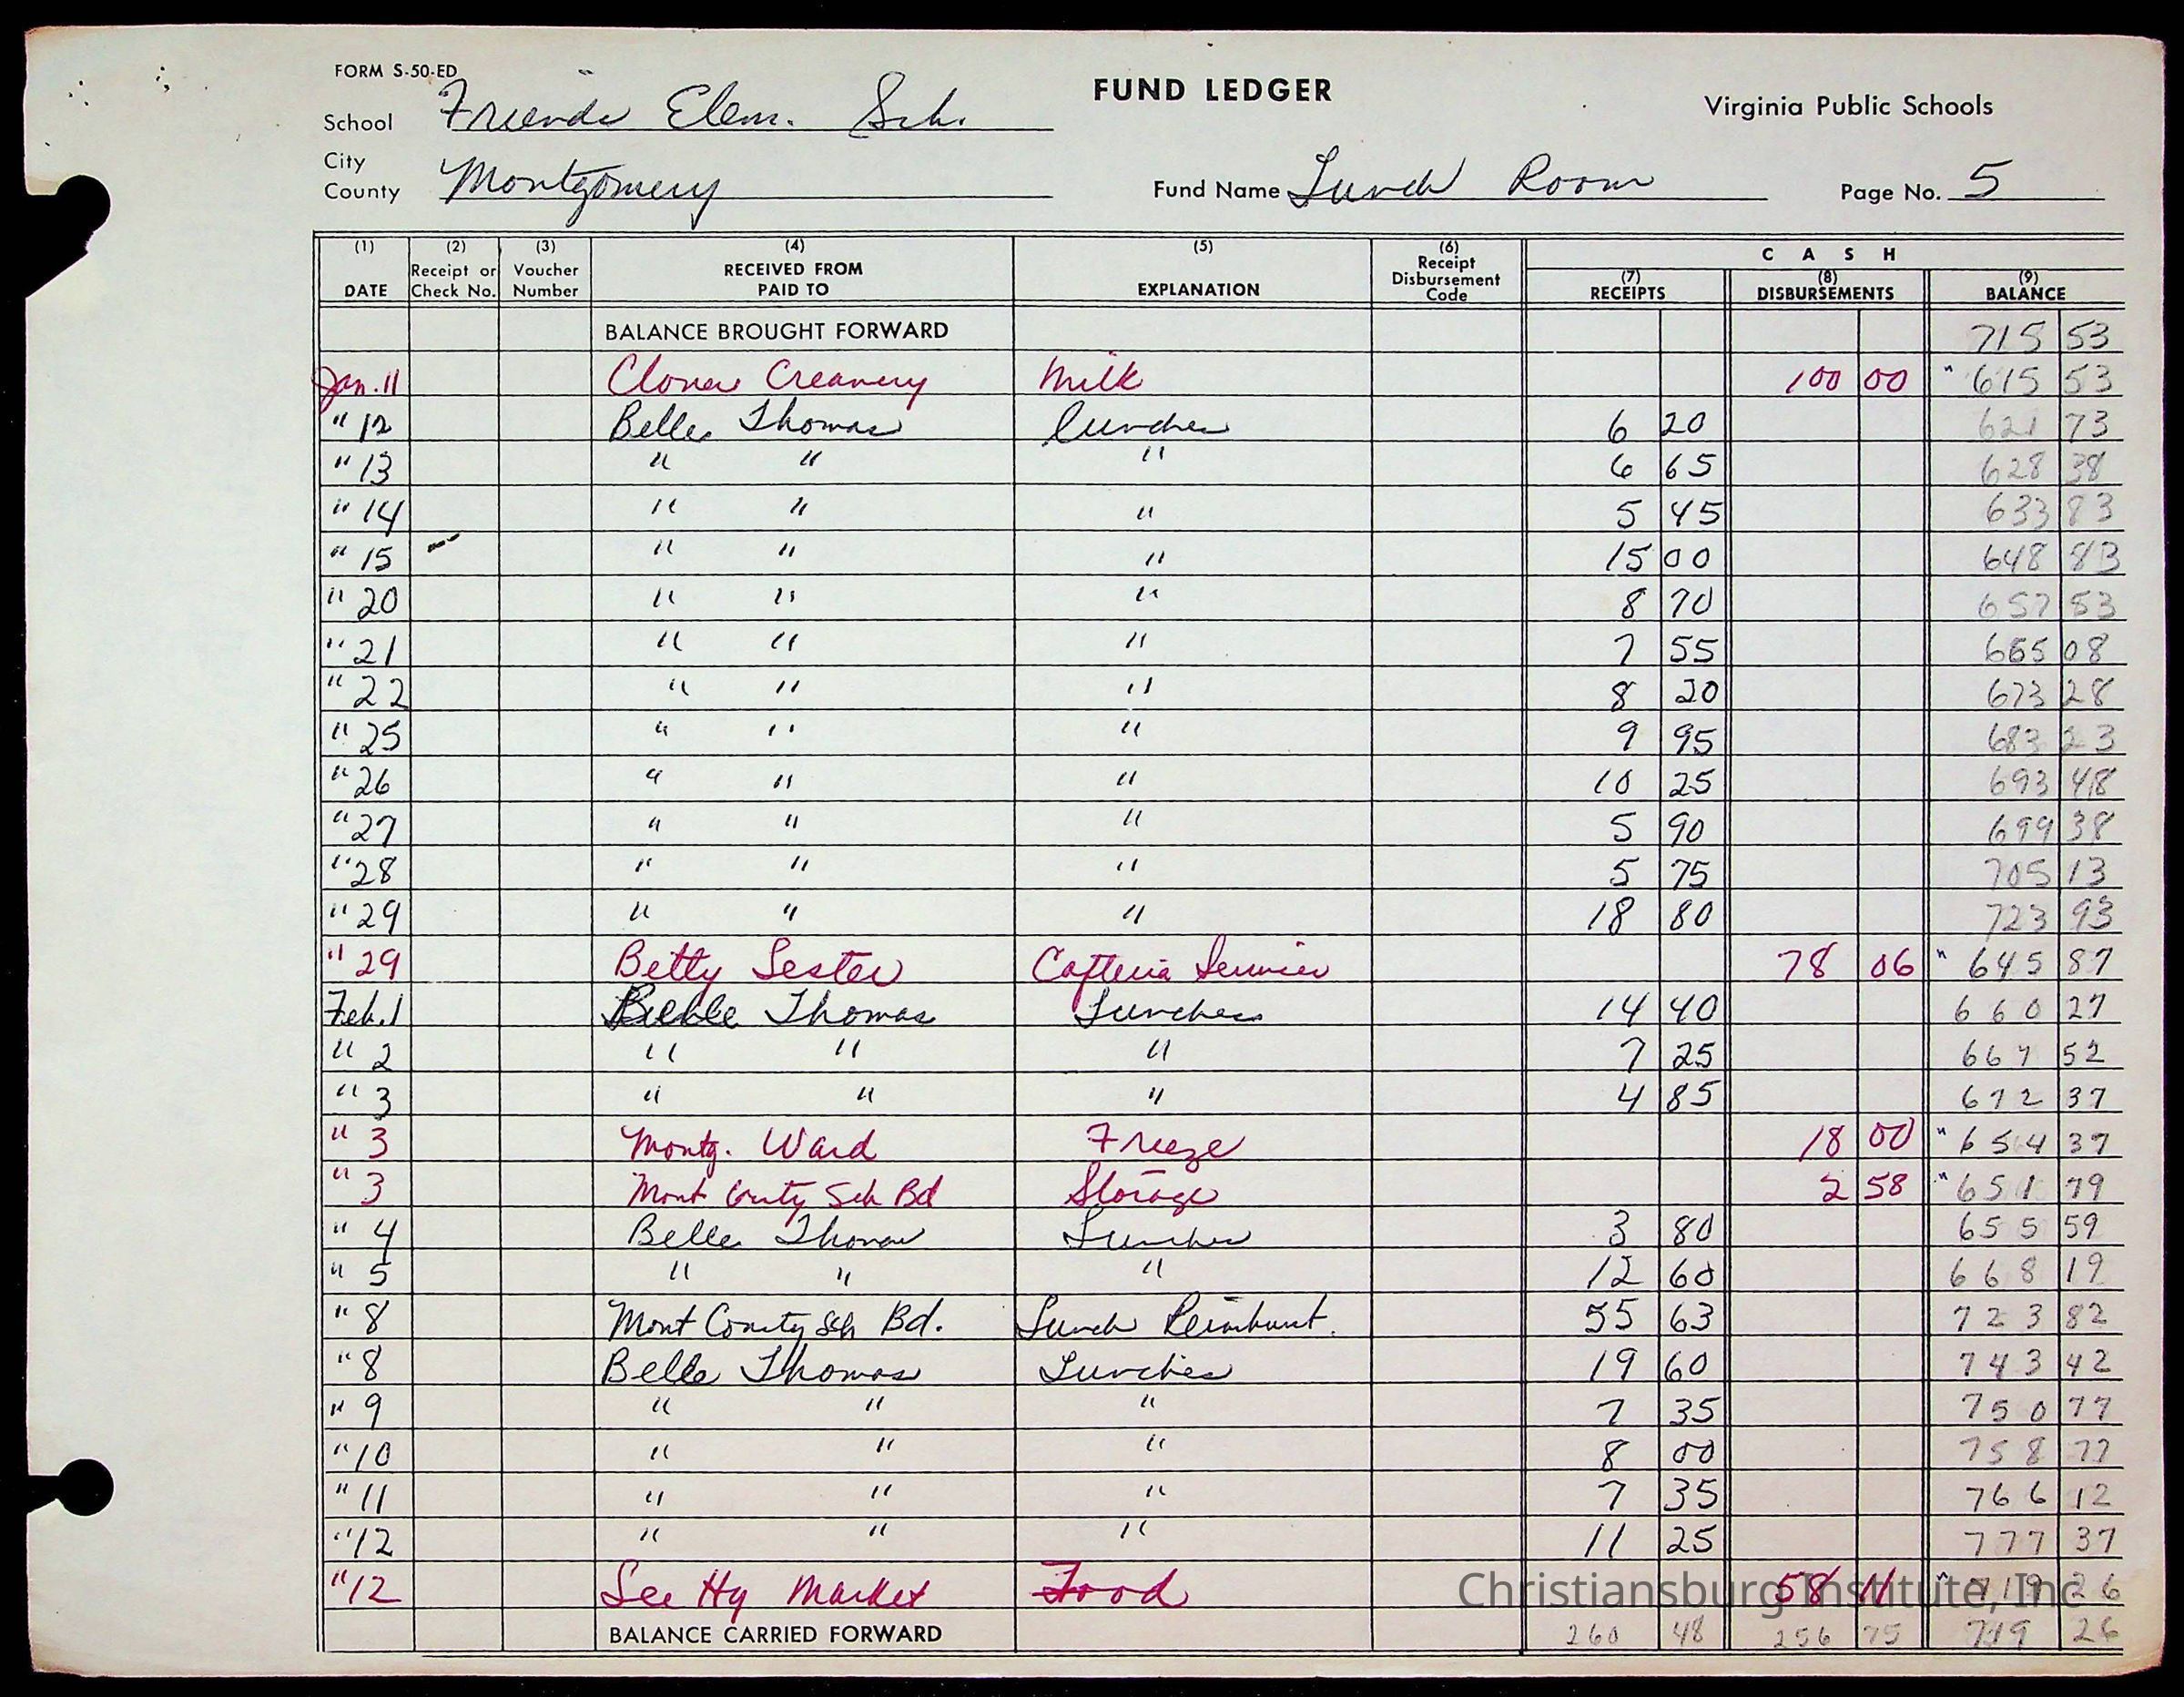 FORM S-50-ED
FUND LEDGER
Virginia Public Schools
School Friends Elem. Sch.
City
County Montgomery
Fund Name Lunch Room Page No. 5
(1) DATE (2) Receipt or Check No. (3) Voucher Number (4) RECEIVED FROM PAID TO (5) EXPLANATION (6) Receipt Disbursement Code CASH (7) RECEIPTS (8) DISBURSEMENTS (9) BALANCE
BALANCE BROUGHT FORWARD 715 53
Jan. 11 Clover Creamery Milk 100 00 " 615 53
" 12 Belle Thomas lunches 6 20 621 73
" 13 " " " 6 65 628 38
" 14 " " " 5 45 633 83
" 15 " " " 15 00 648 83
" 20 " " " 8 70 657 53
" 21 " " " 7 55 665 08
" 22 " " " 8 20 673 28
" 25 " " " 9 95 683 23
" 26 " " " 10 25 693 48
" 27 " " " 5 90 699 38
" 28 " " " 5 75 705 13
" 29 " " " 18 80 723 93
" 29 Betty Lester Cafteria Service 78 06 " 645 87
Feb. 1 Belle Thomas Lunches 14 40 660 27
" 2 " " " 7 25 667 52
" 3 " " " 4 85 672 37
" 3 Montg. Ward Freeze 18 00 " 654 37
" 3 Mont Conty Sch Bd Storage 2 58 " 651 79
" 4 Belle Thomas Lunches 3 80 655 59
" 5 " " " 12 60 668 19
" 8 Mont County Sch Bd. Lunch 55 63 723 82
" 8 Belle Thomas Lunches 19 60 743 42
" 9 " " " 7 35 750 77
" 10 " " " 8 00 758 77
" 11 " " " 7 35 766 12
" 12 " " " 11 25 777 37
" 12 Lee Hy Market Food 58 11 " 719 26
BALANCE CARRIED FORWARD 260 48 256 75 719 26
Christiansburg Institute, Inc